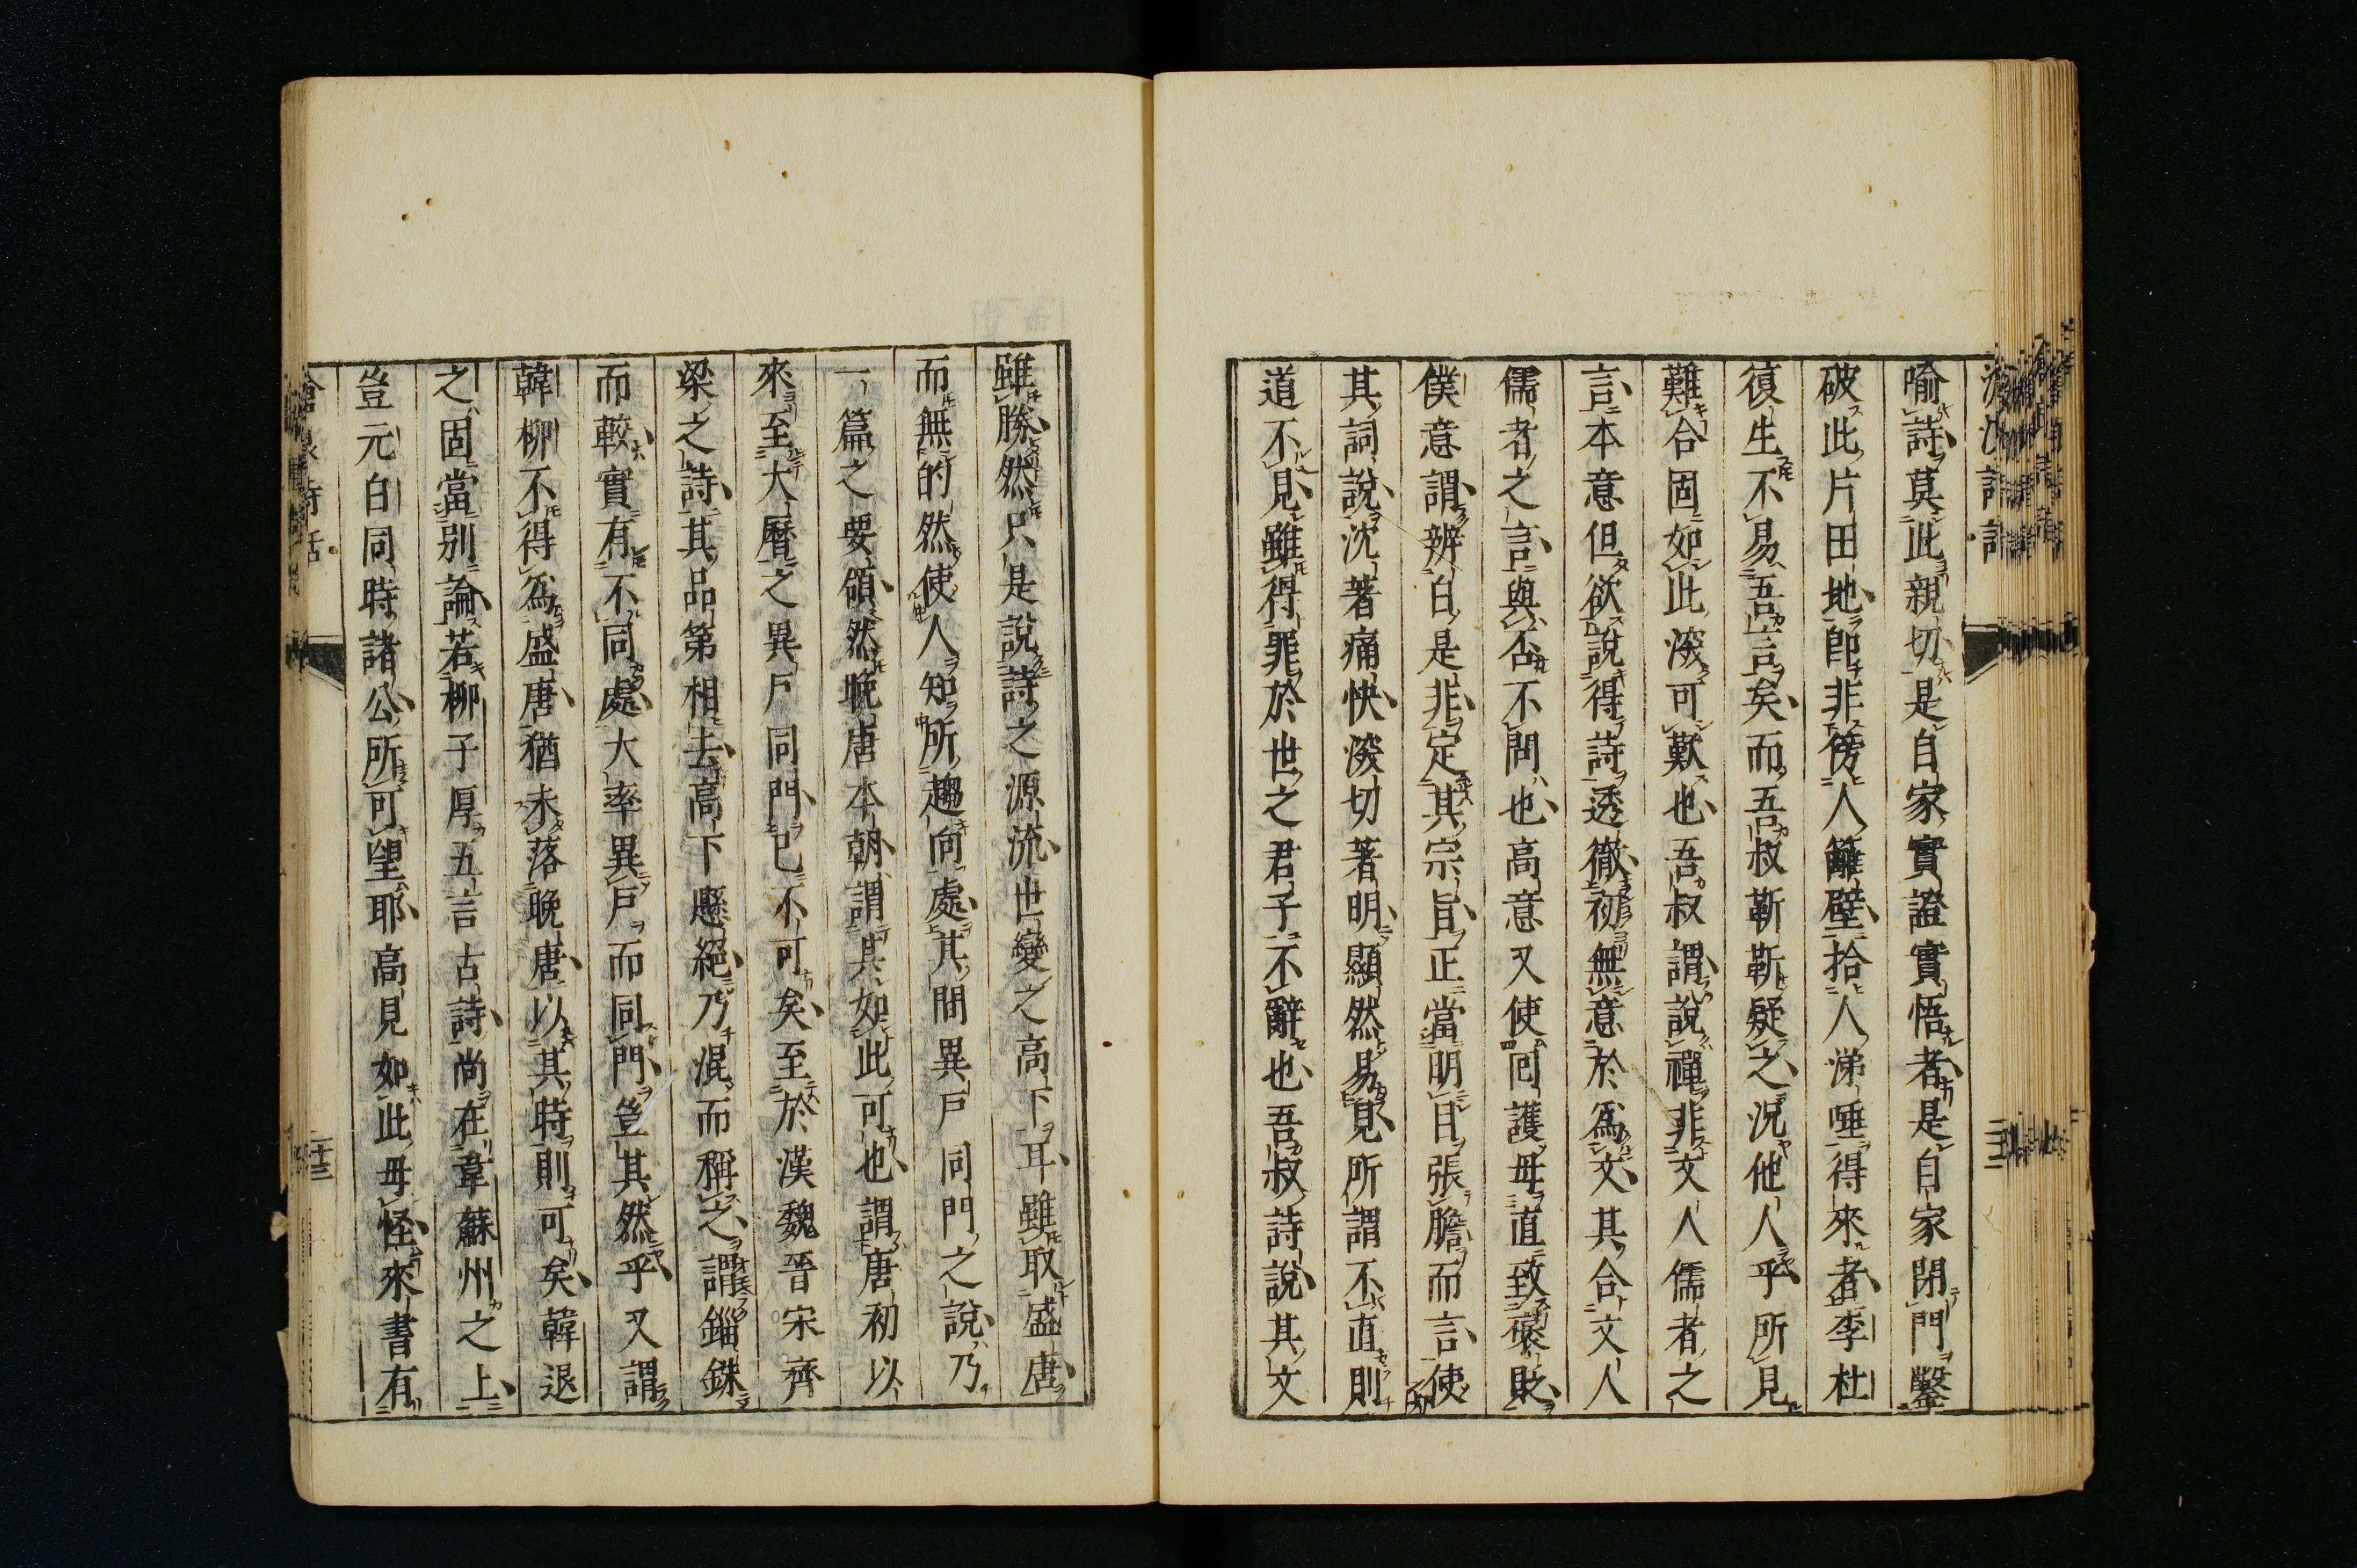 喻詩莫此親切是自家實證實悟者是自家閉門鑿
破此片田地卽非傍人籬壁拾人涕唾得來者李杜
復生不易吾言矣而吾叔靳靳疑之況他人乎所見
難合固如此深可歎也吾叔謂說禪非文人儒者之
言本意但欲說得詩透徹初無意於爲文其合文人
儒者之言與否不問也高意又使回護毋直致襃貶
僕意謂辨白是非定其宗旨正當明目張膽而言使
其詞說沈著痛快深切著明顯然易見所謂不直則
道不見雖得罪於世之君子不辭也吾叔詩說其文
雖勝然只是說詩之源流世變之高下耳雖取盛唐
而無的然使人知所趨向處其間異戶同門之說乃
一篇之要領然晚唐本朝謂其如此可也謂唐初以
來至大曆之異戶同門已不可矣至於漢魏晉宋齊
梁之詩其品第相去高下懸絕乃混而稱之謂錙銖
而較實有不同處大率異戶而同門豈其然乎又謂
韓柳不得爲盛唐猶未落晚唐以其時則可矣韓退
之固當別論若柳子厚五言古詩尚在韋蘇州之上
豈元白同時諸公所可望耶高見如此毋怪來書有